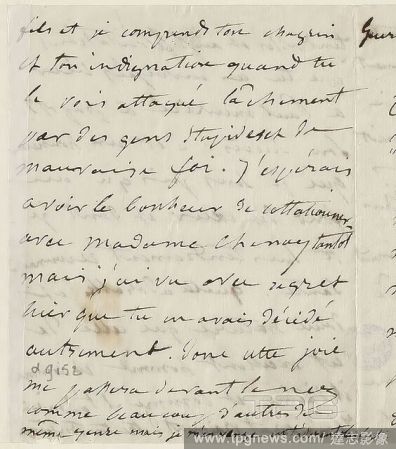 fils et je comprends ton chagrin
et ton indignation quand tu
le vois attaqué lâchement
par des gens stupides et de
mauvaise foi. J'espérais
avoir le bonheur de collationner
avec madame Chenay tantôt
mais j'ai vu avec regret
hier que tu en avais décidé
autrement. Donc cette joie
me passera devant le nez
comme beaucoup d'autres du
même genre mais je
Guer
d 9152
TPG
www.tpgnews.com / 達志影像